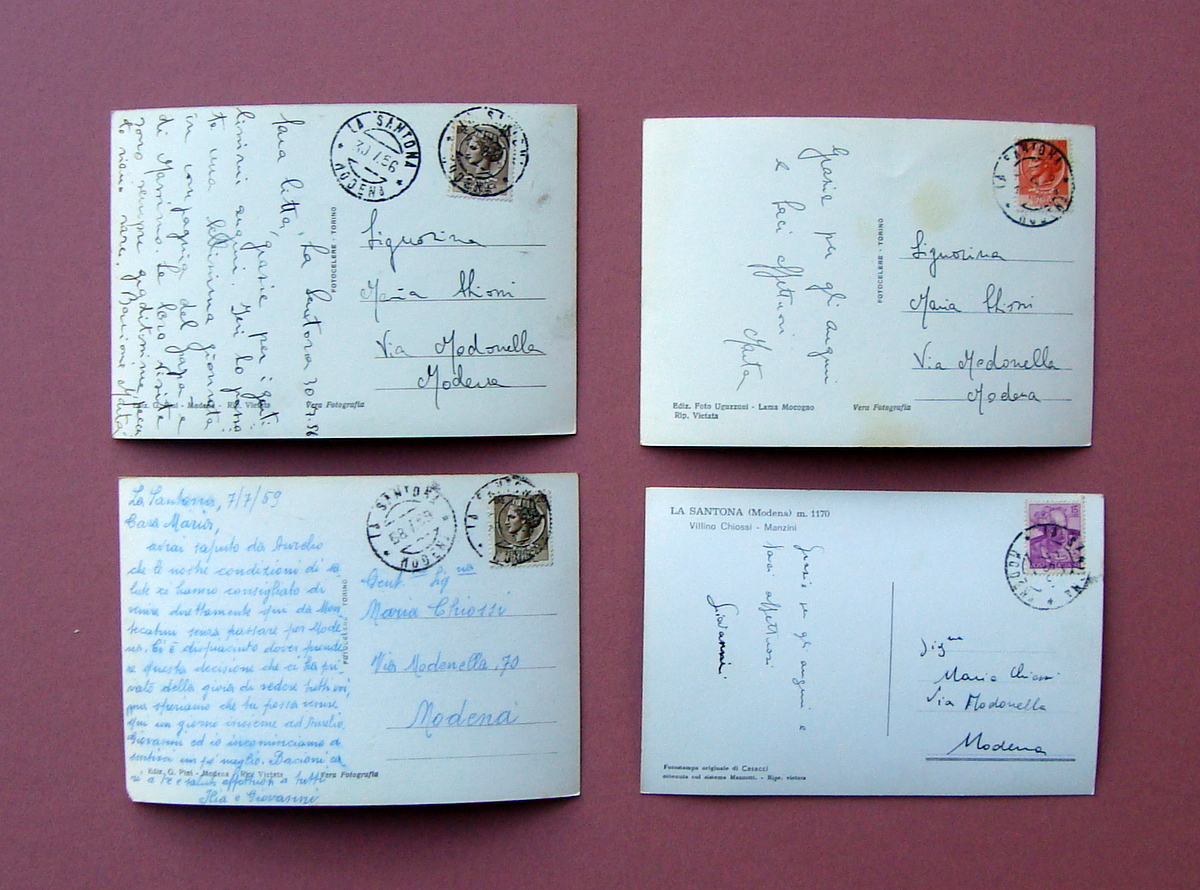 LA SANTONA
30.7.56
MODENA
La Santona 30.7.56
Cara
grazie per i
auguri. Ieri ho
una bellissima giornata
in compagnia del papà e
di Massimo. Le loro visite
sono sempre graditissime,
Bacione Marta
FOTOCELERE - TORINO
Signorina
Maria Chiossi
Via Modonella
Modena
Ediz. G. Pini - Modena - Rip. Vietata
Vera Fotografia
LA SANTONA
Grazie per gli auguri
e baci affettuosi
Marta
FOTOCELERE - TORINO
Signorina
Maria Chiossi
Via Modonella
Modena
Ediz. Foto Uguzzoni - Lama Mocogno
Rip. Vietata
Vera Fotografia
La Santona, 7/7/59
Cara Maria,
avrai saputo da Aurelio
che le nostre condizioni di sa-
lute ci hanno consigliato di
venire direttamente qui da Mon-
tecatini senza passare per Mode-
na. Ci è dispiaciuto dover prende-
re questa decisione che ci ha pri-
vato della gioia di vedere tutti voi,
ma speriamo che tu possa venire
qui un giorno insieme ad Aurelio.
Giovanni ed io incominciamo a
sentirci un pò meglio. Bacioni ca-
ri a te e saluti affettuosi a tutti
Ilia e Giovanni
LA SANTONA
MODENA
FOTOCELERE TORINO
Gent. Sig.na
Maria Chiossi
Via Modonella, 70
Modena
Ediz. G. Pini - Modena Rip. Vietata
Vera Fotografia
LA SANTONA (Modena) m. 1170
Villino Chiossi - Manzini
Grazie per gli auguri e
baci affettuosi
Giovanni
Sig.na
Maria Chiossi
Via Modonella
Modena
Fotostampa originale di Casacci
ottenuta col sistema Mazzotti. - Ripr. vietata